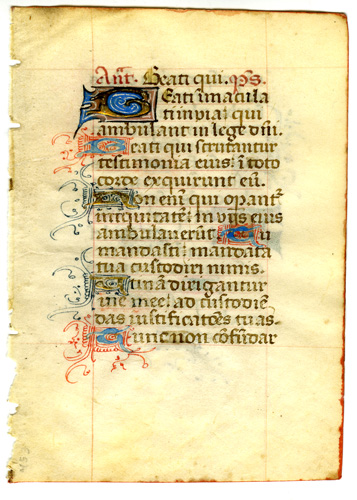 Añt. Beati qui. p̃s.
Beati ĩmacula
ti in uia: qui
ambulant in lege dñi.
Beati qui scrutantur
testimonia eius: ĩ toto
corde exquirunt eũ.
Non enĩ qui opant᷑
iniquitatẽ: in vijs eius
ambulauerũt. Tu
mandasti: mandata
tua custodiri nimis.
Utinã dirigantur
uie mee: ad custodiẽ
das iustificatões tuas.
Tunc non cõfũdar